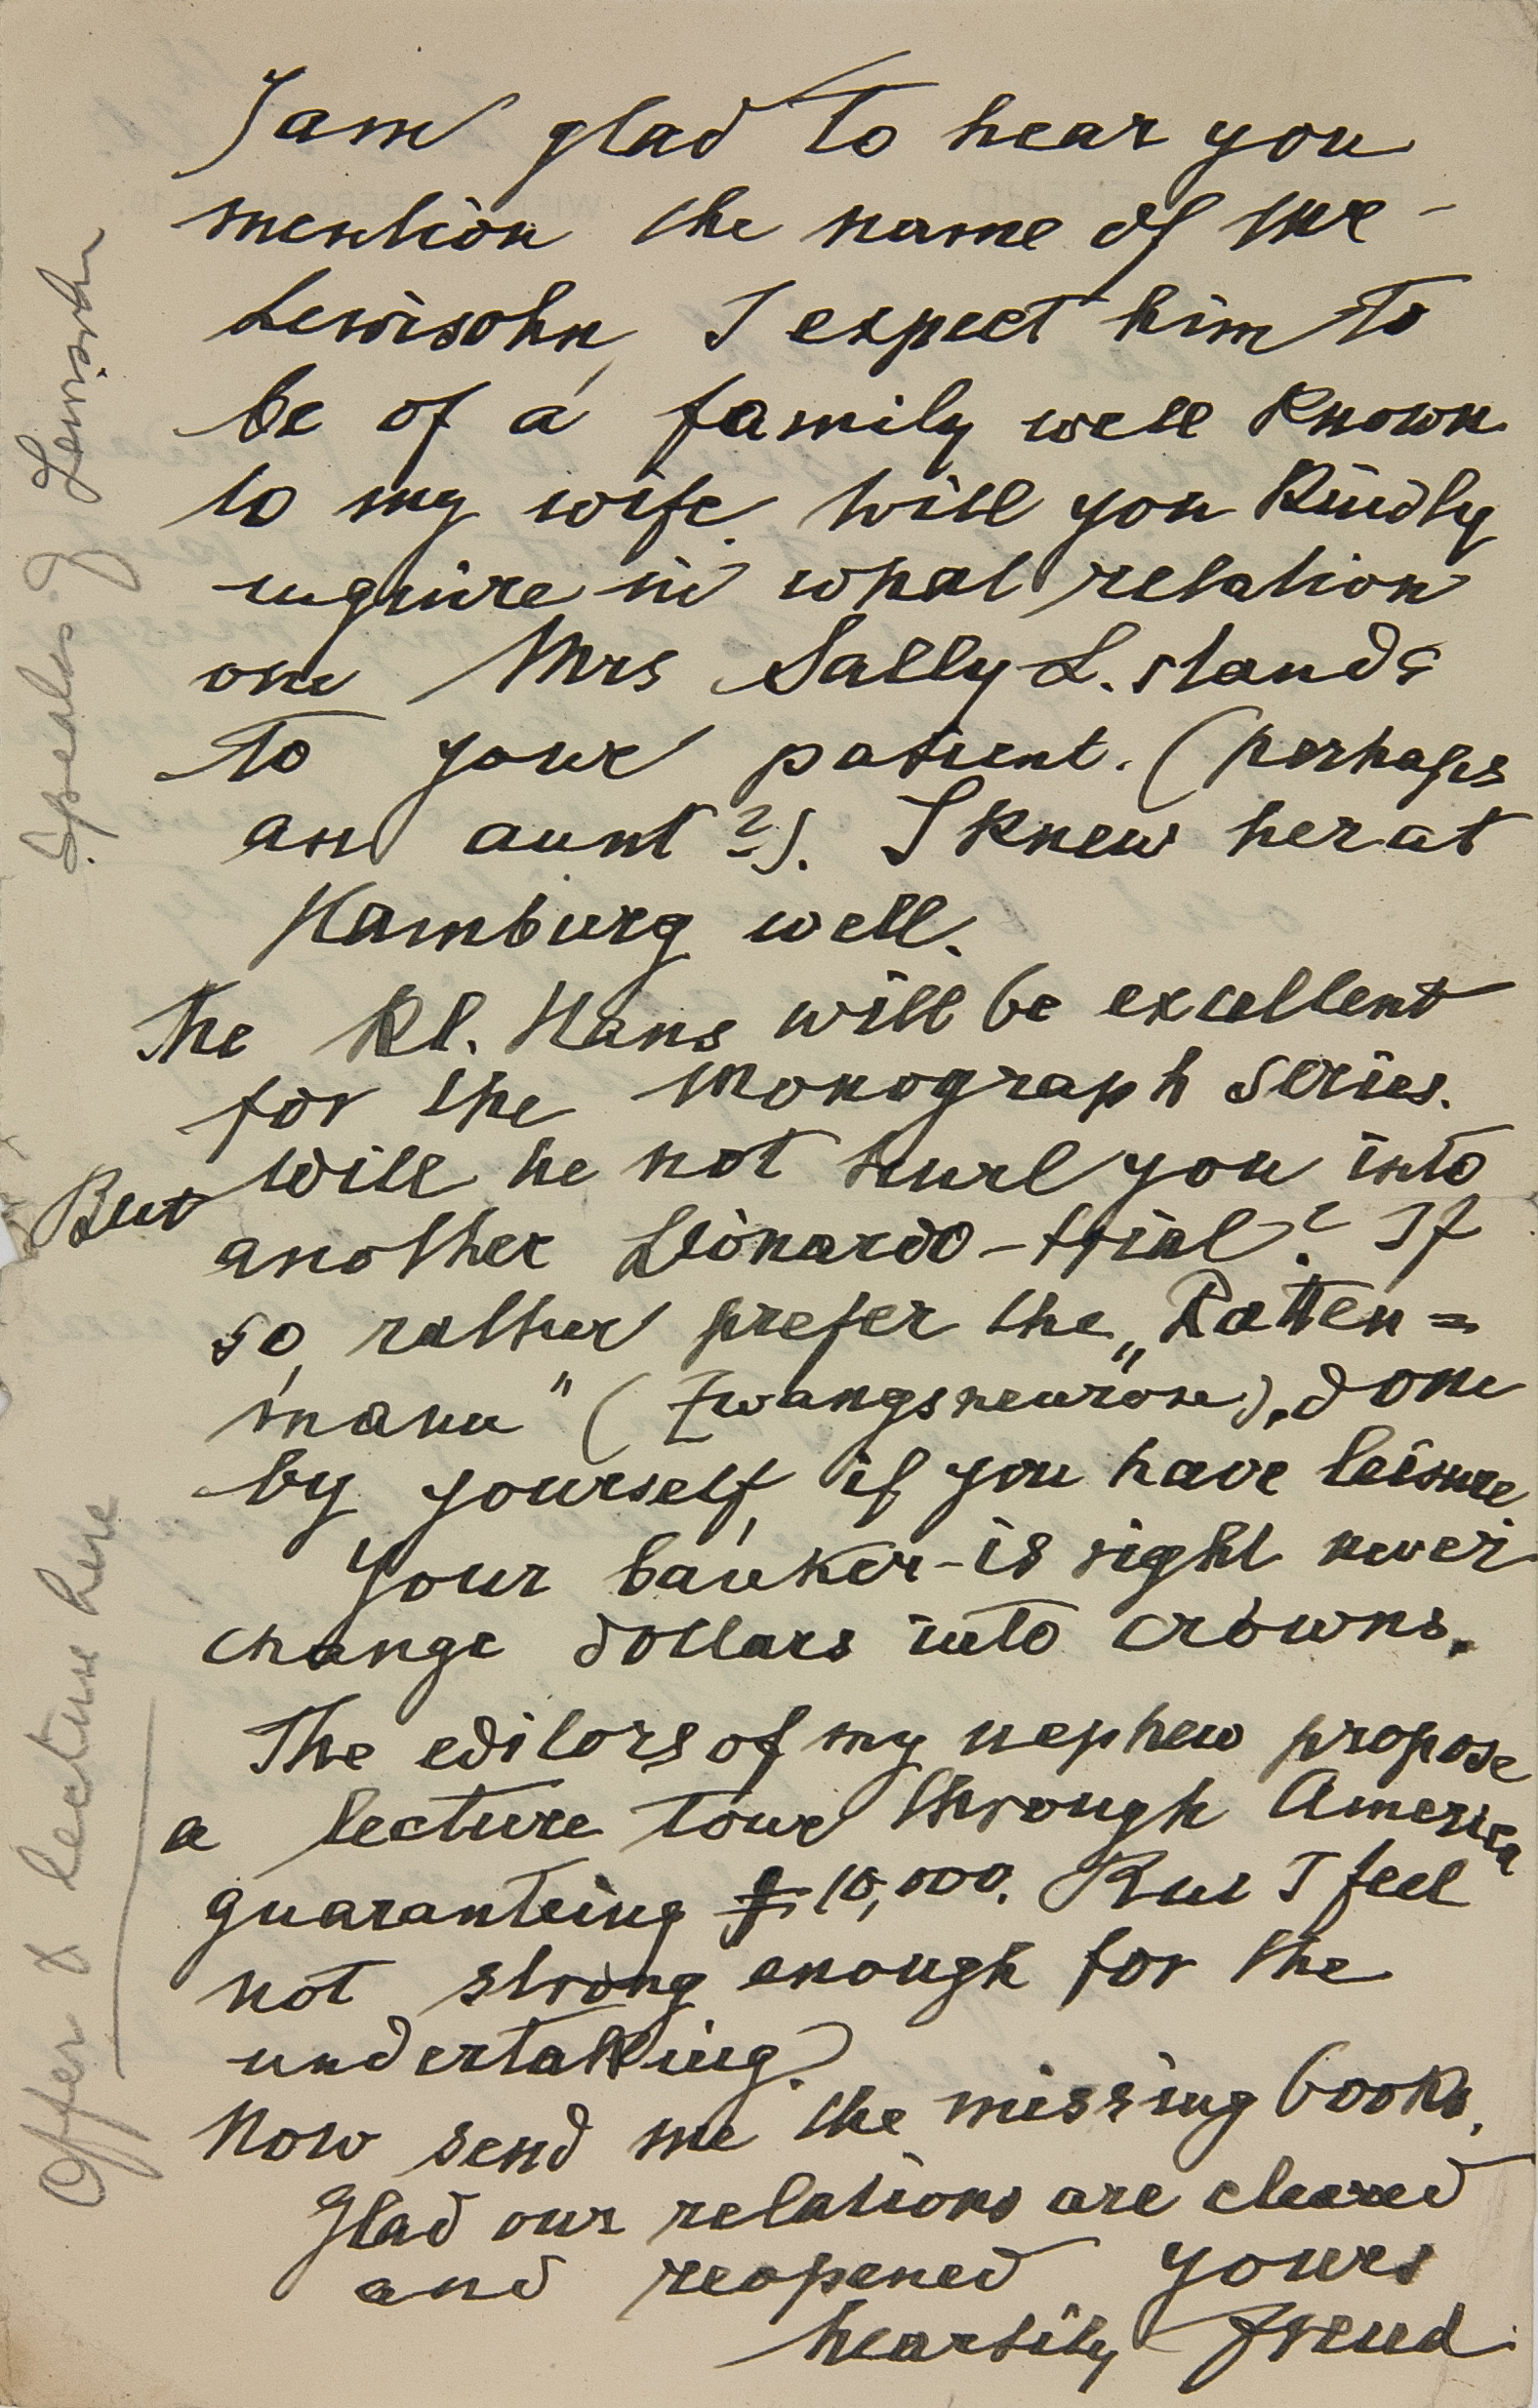 I am glad to hear you
mention the name of Mr
Lewisohn, I expect him to
be of a family well known
to my wife. Will you kindly
inquire in what relation
one Mrs Sally L. stands
to your patient. (perhaps
an aunt?). I knew her at
Hamburg well.
The Kl. Hans will be excellent
for the Monograph series.
But will he not hurl you into
another Leonardo-trial? If
so, rather prefer the „Ratten=
mann" (Zwangsneurose), done
by yourself, if you have leisure
Your banker is right never
change dollars into crowns.
The editors of my nephew propose
a lecture tour through America
guaranteing $ 10,000. But I feel
not strong enough for the
undertaking.
Now send me the missing books.
Glad our relations are cleared
and reopened yours
heartily Freud
Speaks of Lewisohn
Offer of lecture here